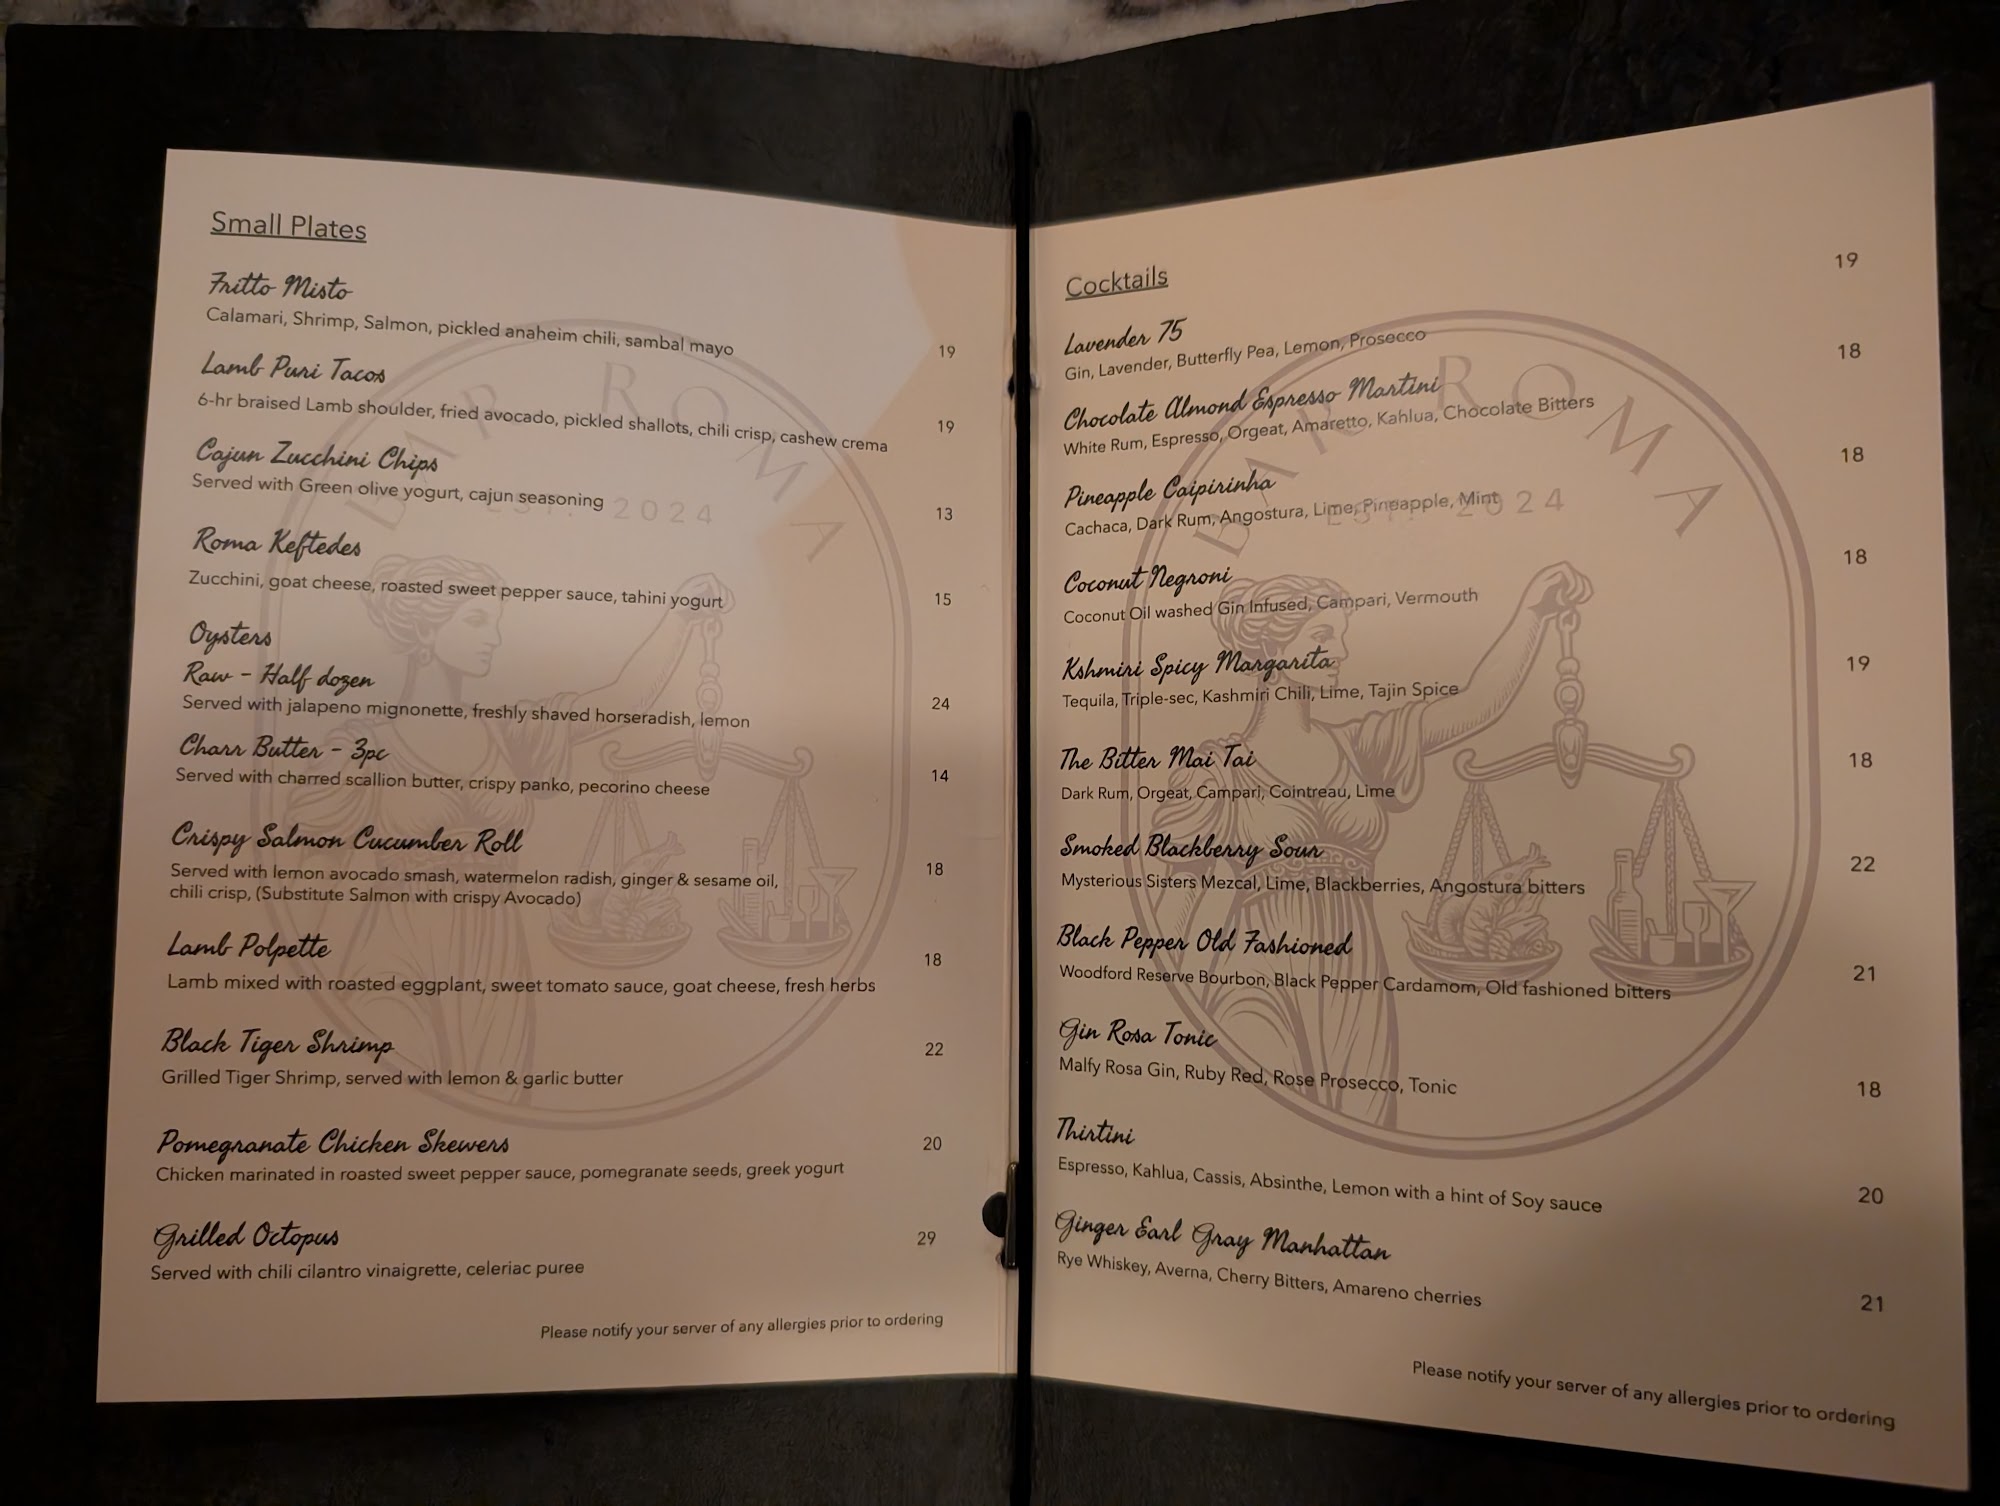 Small Plates
Fritto Misto
Calamari, Shrimp, Salmon, pickled anaheim chili, sambal mayo 19
Lamb Puri Tacos
6-hr braised Lamb shoulder, fried avocado, pickled shallots, chili crisp, cashew crema 19
Cajun Zucchini Chips
Served with Green olive yogurt, cajun seasoning 13
Roma Keftedes
Zucchini, goat cheese, roasted sweet pepper sauce, tahini yogurt 15
Oysters
Raw - Half dozen
Served with jalapeno mignonette, freshly shaved horseradish, lemon 24
Charr Butter - 3pc
Served with charred scallion butter, crispy panko, pecorino cheese 14
Crispy Salmon Cucumber Roll
Served with lemon avocado smash, watermelon radish, ginger & sesame oil, 18
chili crisp, (Substitute Salmon with crispy Avocado)
Lamb Polpette 18
Lamb mixed with roasted eggplant, sweet tomato sauce, goat cheese, fresh herbs
Black Tiger Shrimp 22
Grilled Tiger Shrimp, served with lemon & garlic butter
Pomegranate Chicken Skewers 20
Chicken marinated in roasted sweet pepper sauce, pomegranate seeds, greek yogurt
Grilled Octopus 29
Served with chili cilantro vinaigrette, celeriac puree
Please notify your server of any allergies prior to ordering
BAR ROMA
EST. 2024
Cocktails 19
Lavender 75
Gin, Lavender, Butterfly Pea, Lemon, Prosecco 18
Chocolate Almond Espresso Martini
White Rum, Espresso, Orgeat, Amaretto, Kahlua, Chocolate Bitters 18
Pineapple Caipirinha
Cachaca, Dark Rum, Angostura, Lime, Pineapple, Mint 18
Coconut Negroni
Coconut Oil washed Gin Infused, Campari, Vermouth
Kshmiri Spicy Margarita 19
Tequila, Triple-sec, Kashmiri Chili, Lime, Tajin Spice
The Bitter Mai Tai 18
Dark Rum, Orgeat, Campari, Cointreau, Lime
Smoked Blackberry Sour 22
Mysterious Sisters Mezcal, Lime, Blackberries, Angostura bitters
Black Pepper Old Fashioned 21
Woodford Reserve Bourbon, Black Pepper Cardamom, Old fashioned bitters
Gin Rosa Tonic 18
Malfy Rosa Gin, Ruby Red, Rose Prosecco, Tonic
Thirtini 20
Espresso, Kahlua, Cassis, Absinthe, Lemon with a hint of Soy sauce
Ginger Earl Gray Manhattan 21
Rye Whiskey, Averna, Cherry Bitters, Amareno cherries
Please notify your server of any allergies prior to ordering
BAR ROMA
EST. 2024